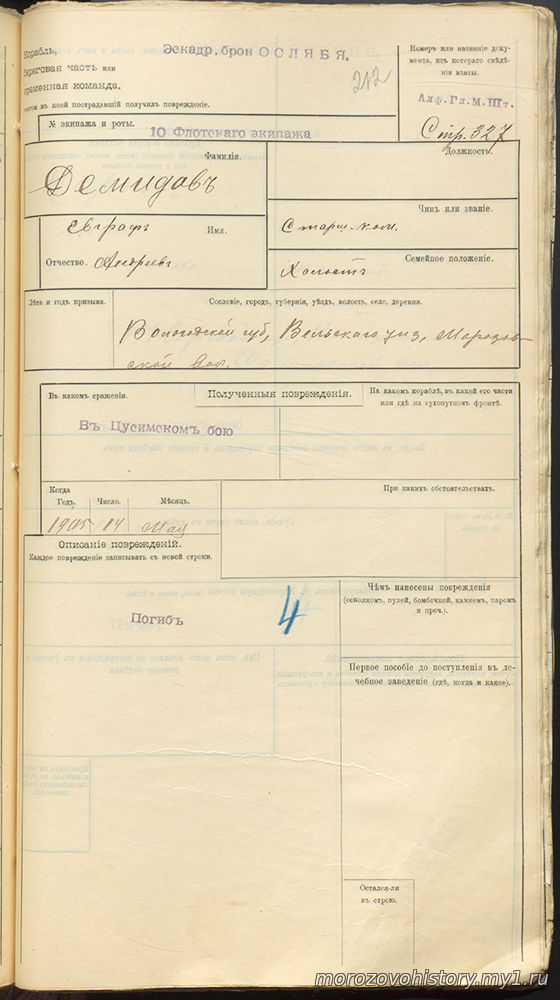 Корабль,
береговая часть или
временная команда.
Эскадр. брон ОСЛЯБЯ.
212
въ коей пострадавшій получилъ поврежденіе.
Номеръ или названіе доку-
мента, изъ котораго свѣдѣ-
нія взяты.
Алф. Гл. М. Шт.
Стр. 327
№ экипажа и роты.
10 Флотскаго экипажа
Фамилія.
Демидовъ
Должность.
Евграфъ
Имя.
Отчество.
Андреевъ
Чинъ или званіе.
Старш. ком.
Семейное положеніе.
Холостъ
Лѣта и годъ призыва.
Сословіе, городъ, губернія, уѣздъ, волость, село, деревня.
Вологодской губ, Вельскаго уѣз, Морозов-
ской вол.
Въ какомъ сраженіи.
Полученныя поврежденія.
На какомъ кораблѣ, въ какой его части
или гдѣ на сухопутномъ фронтѣ.
Въ Цусимскомъ бою
Когда
Годъ.
Число.
Мѣсяцъ.
При какихъ обстоятельствахъ.
1905
14
Мая
Описаніе поврежденій.
Каждое поврежденіе записывать съ новой строки.
Погибъ
4
Чѣмъ нанесены поврежденія
(осколкомъ, пулей, бомбочкой, камнемъ, паромъ
и проч.).
Первое пособіе до поступленія въ ле-
чебное заведеніе (гдѣ, когда и какое).
Остался-ли
въ строю.
morozovohistory.my1.ru